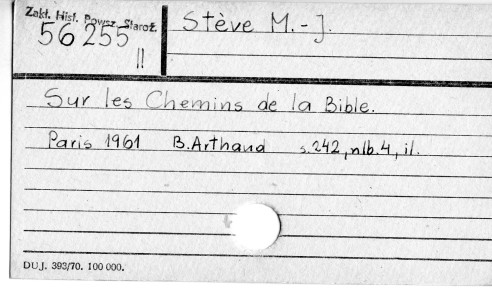 Zakł. Hist. Powsz. Staroż.
56255
II
Stève M.-J.
Sur les Chemins de la Bible.
Paris 1961 B. Arthaud s. 242, nlb. 4, il.
DUJ. 393/70. 100 000.